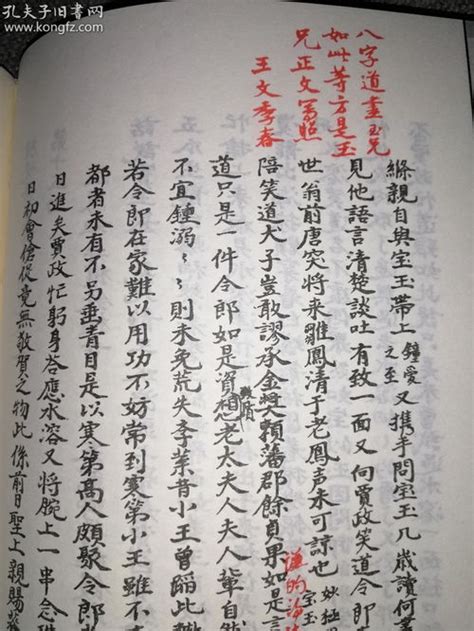 孔夫子旧書网
www.kongfz.com
八字道盡玉兄
如此等方是玉
兄正文寫照
王文季春
縧親自與宝玉帶上鐘愛之至又携手問宝玉几歲讀何書
見他語言清楚談吐有致一面又向賈政笑道令郎
世翁前唐突將来雛鳳清于老鳳声未可諒也妙極
謙的
陪笑道犬子豈敢謬承金奬頼藩郡餘貞果如是言
道只是一件令郎如是資想老太夫人夫人輩自
不宜鍾溺〻則未免荒失李業昔小王曾蹈此
若令郎在家難以用功不妨常到寒第小王雖不
都者未有不另垂青目是以寒第高人頗聚令郎
日進矣賈政忙躬身答應水溶又將腕上一串念珠
日初會倉促竟無敬賀之物此係前日聖上親賜